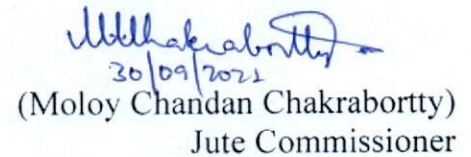 MChakrabortty
30/09/2021
(Moloy Chandan Chakrabortty)
Jute Commissioner